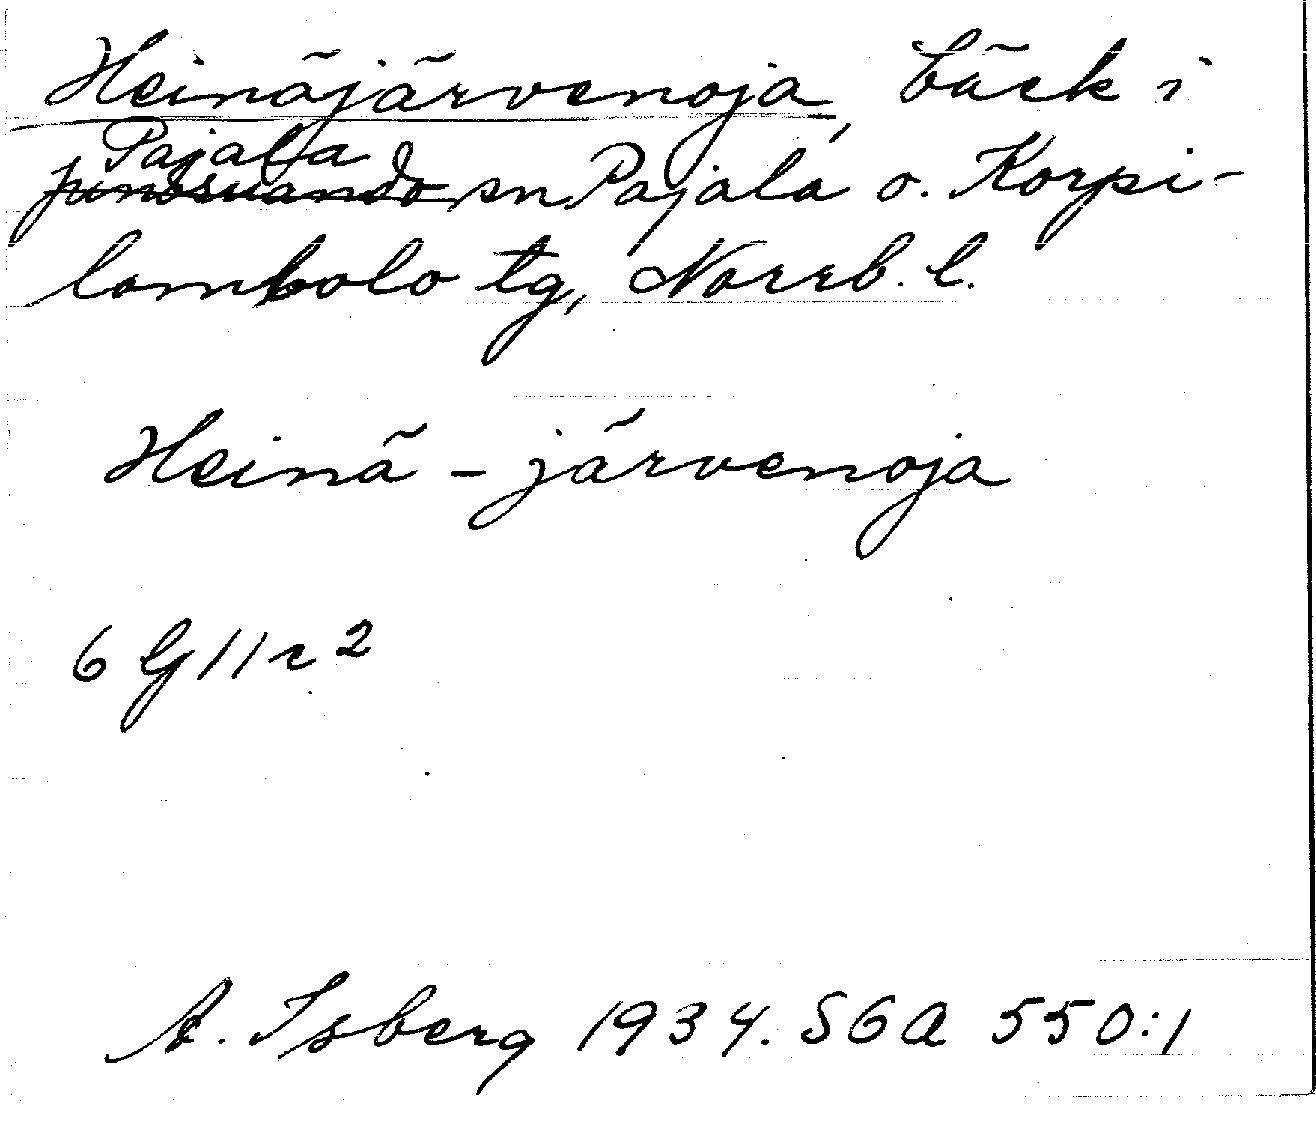 Heinäjärvenoja, bäck i
Pajala
junosuando sn Pajala o. Korpi-
lombolo tg, Norrb. l.
Heinä - järvenoja
6 G 11 r 2
A. Isberg 1934. SGA 550:1